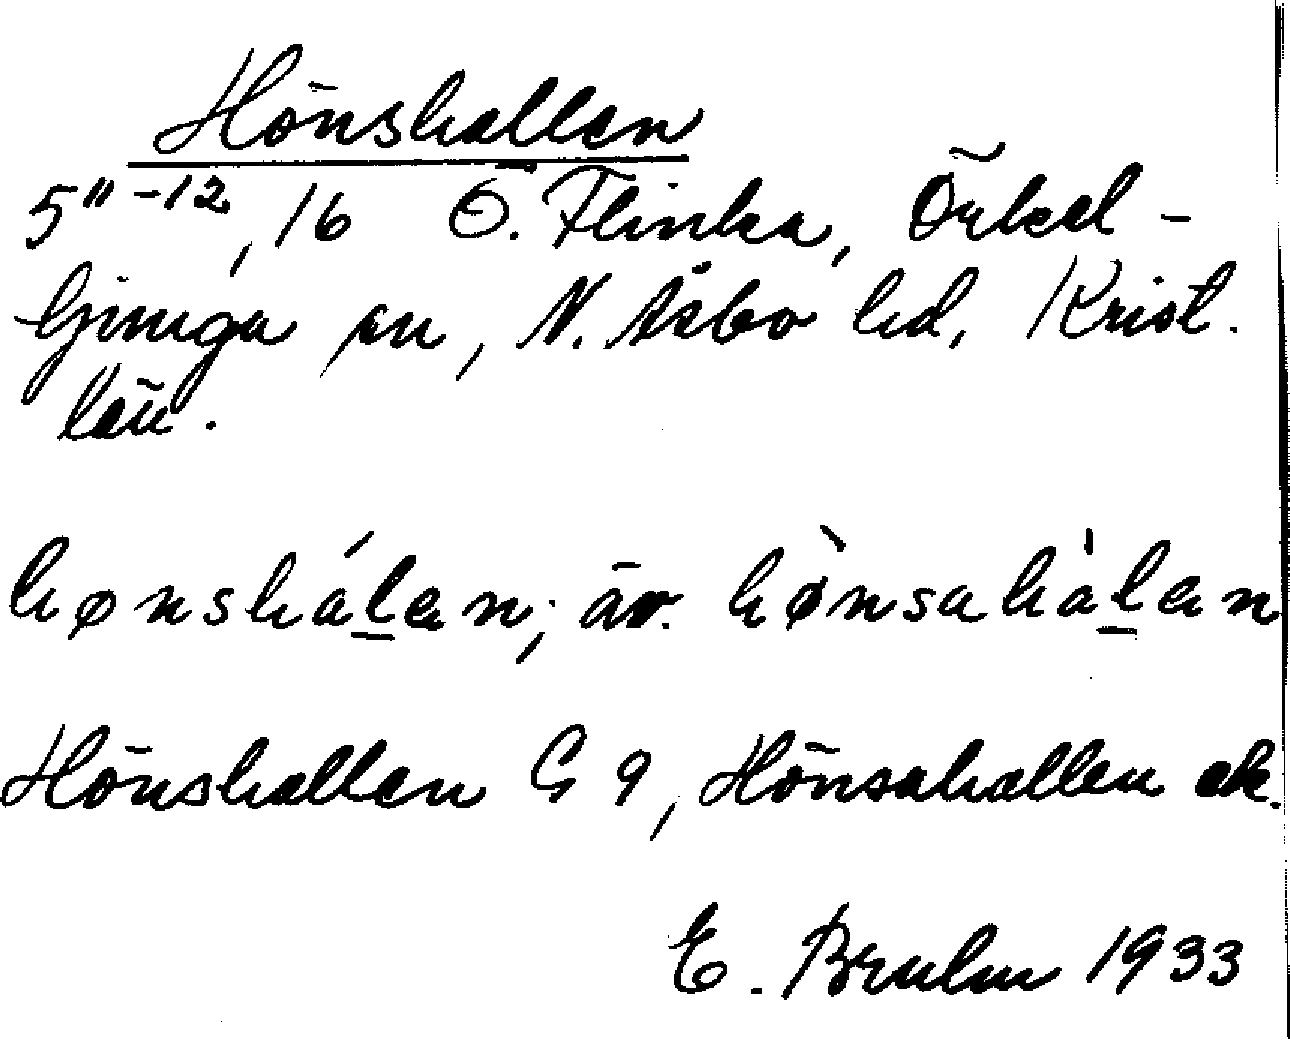 Hönshallen
5¹¹⁻¹², 16 Ö. Flinka, Örkel-
ljunga sn, N. Åsbo hd, Krist.
län.
hønshálen; äv. hø̀nsahàlen
Hönshallen G 9, Hönsahallen ek.
E. Bruhn 1933